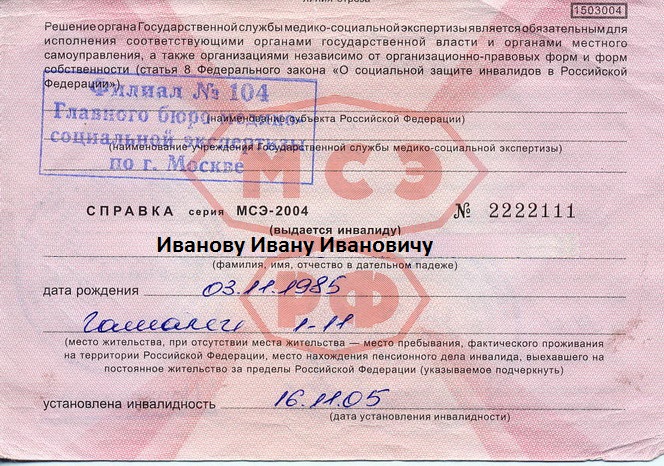 1503004
Решение органа Государственной службы медико-социальной экспертизы является обязательным для
исполнения соответствующими органами государственной власти и органами местного
самоуправления, а также организациями независимо от организационно-правовых форм и форм
собственности (статья 8 Федерального закона «О социальной защите инвалидов в Российской
Федерации»)
Филиал № 104
Главного бюро медико-
(наименование субъекта Российской Федерации)
социальной экспертизы
(наименование учреждения Государственной службы медико-социальной экспертизы)
по г. Москве
МСЭ
СПРАВКА серия МСЭ-2004 № 2222111
(выдается инвалиду)
Иванову Ивану Ивановичу
(фамилия, имя, отчество в дательном падеже)
РФ
дата рождения 03.11.1985
1-11
(место жительства, при отсутствии места жительства — место пребывания, фактического проживания
на территории Российской Федерации, место нахождения пенсионного дела инвалида, выехавшего на
постоянное жительство за пределы Российской Федерации (указываемое подчеркнуть)
установлена инвалидность 16.11.05
(дата установления инвалидности)